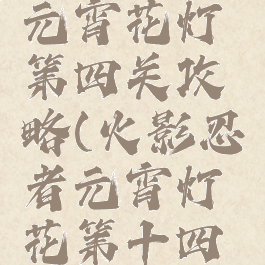 元宵花灯
第四关攻
略(火影忍
者元宵灯
花第十四